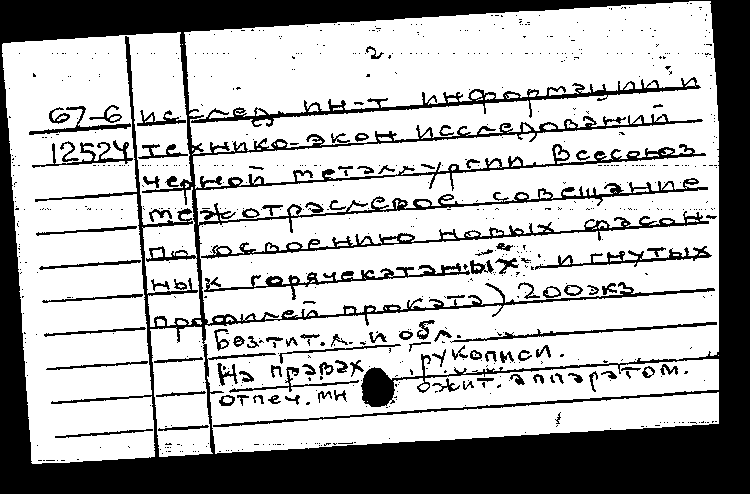 2.
67-6 исслед. ин-т информации и
12524 технико-экон исследований
черной металлургии. Всесоюз
межотраслевое совещание
по освоению новых фасон-
ных горячекатаных и гнутых
профилей проката). 200 экз
Без тит. л. и обл.
На правах рукописи.
отпеч. мн ожит. аппаратом.